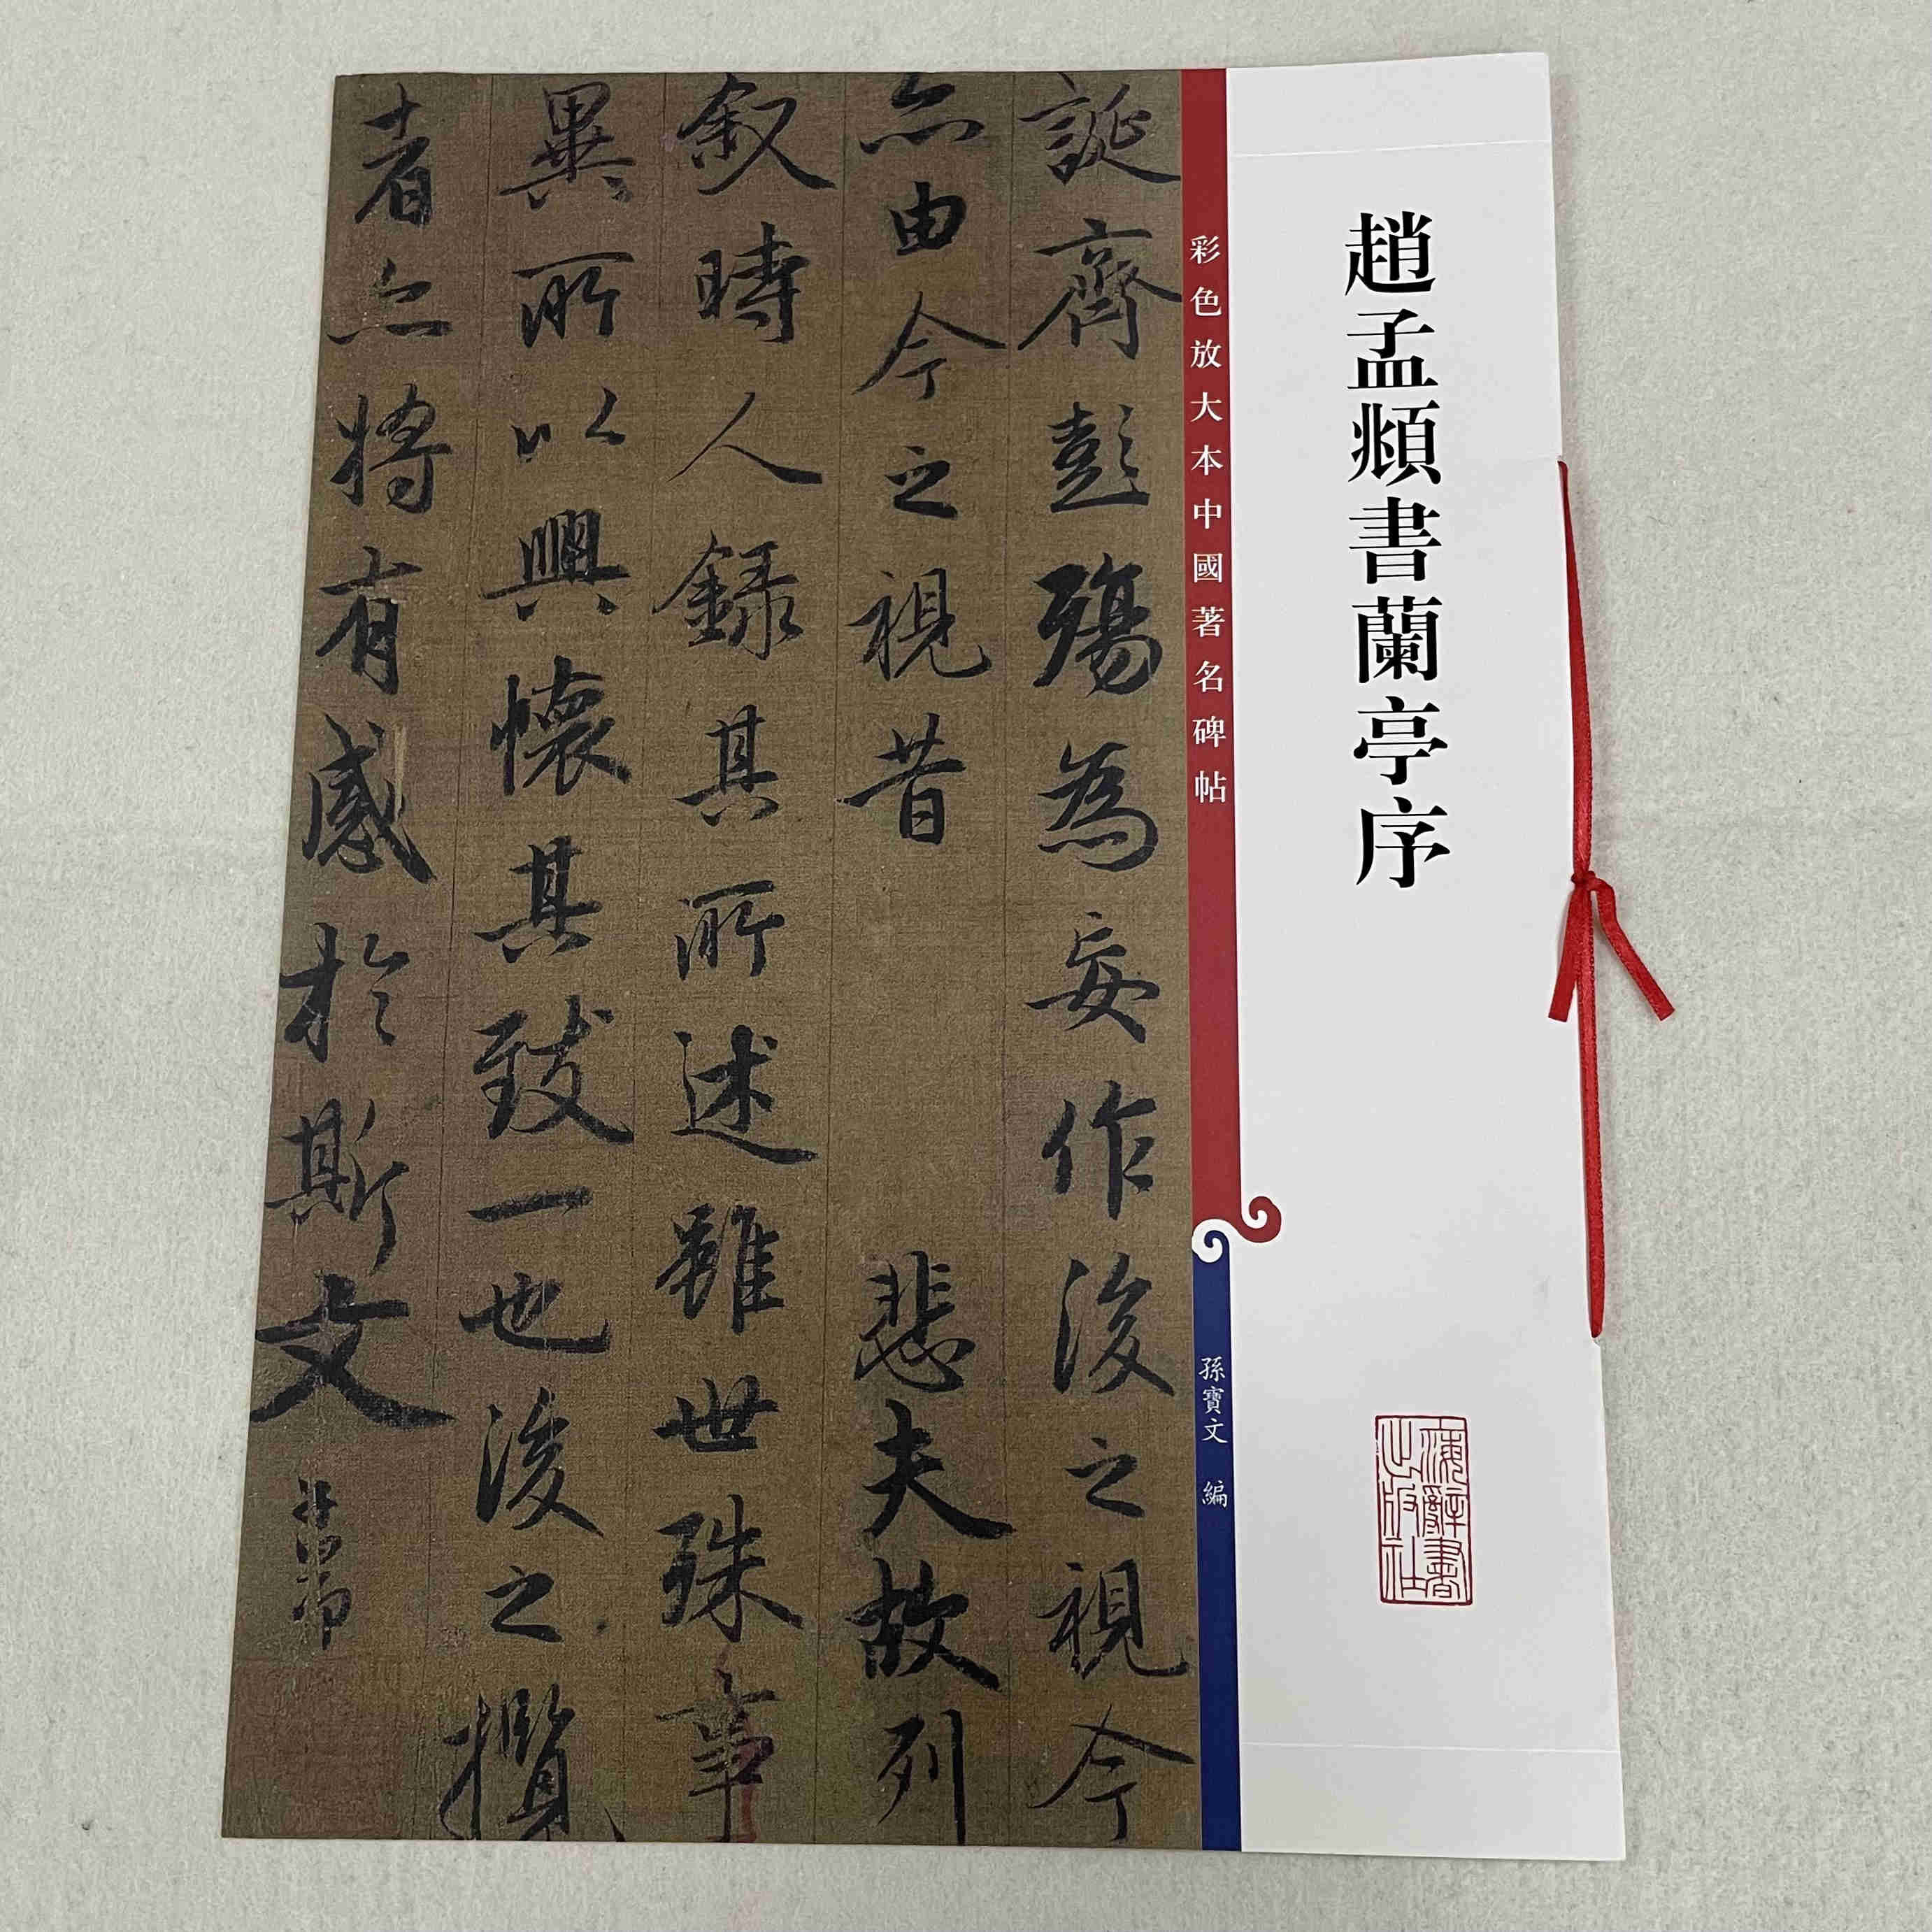 趙孟頫書蘭亭序
海辭書
出版社
彩色放大本中國著名碑帖
孫寶文 編
誕齊彭殤為妄作後之視今
亦由今之視昔 悲夫故列
叙時人録其所述雖世殊事
異所以興懷其致一也後之攬
者亦将有感於斯文